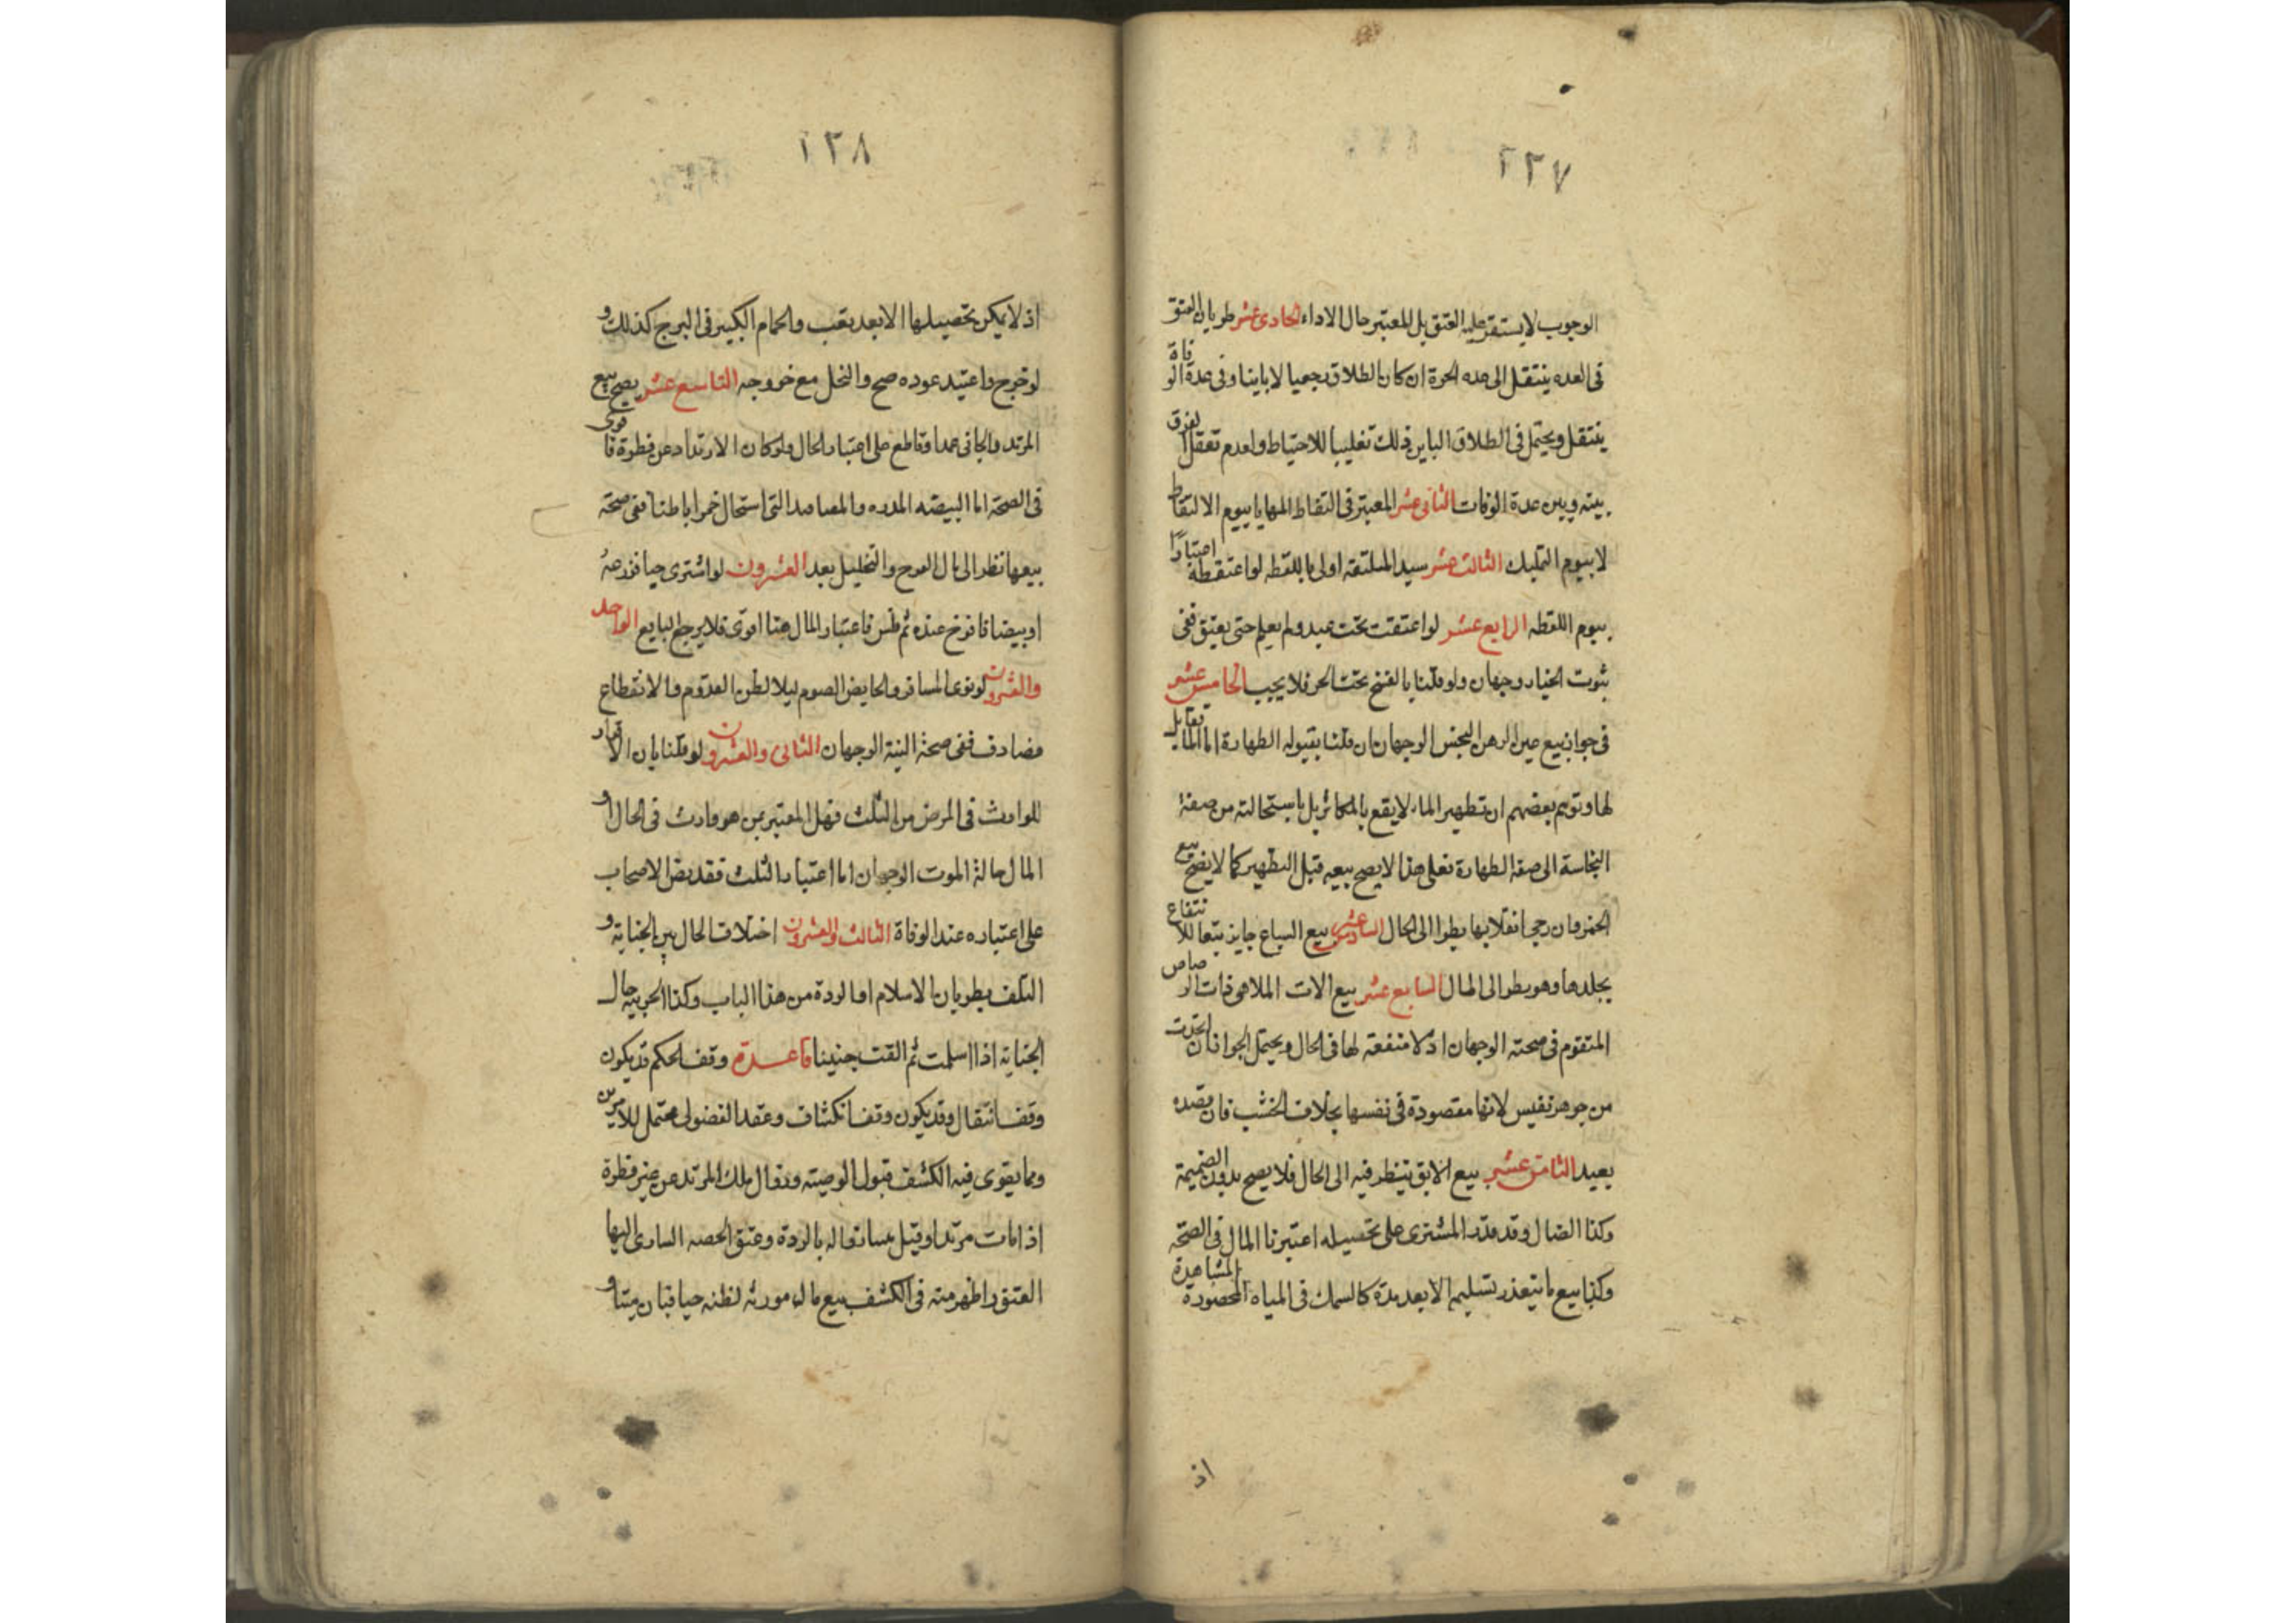 ٢٣٧
الوجوب لا يستقر عليه العتق بل المعتبر حال الاداء الحادى عشر طريان العتق
فى العده ينتقل الى عده الحرة ان كان الطلاق رجعيا لا باينا وفى عدة الوفاة
ينتقل ويحتمل فى الطلاق الباين ذلك تغليبا للاحتياط ولعدم تعقل الفرق
بينه وبين عدة الوفات الثانى عشر المعتبر فى التقاط المهايا بيوم الالتقاط
لا بيوم التمليك الثالث عشر سيد الملتقه اولى باللقطه لو اعتقطة اعتبارًا
بيوم اللقطه الرابع عشر لو اعتقت تحت عبد ولم يعلم حتى يعتق ففى
ثبوت الخيار وجهان ولو قلنا بالفسخ تحت الحر فلا يجب الخامس عشر
فى جواز بيع عين الدهن النجس الوجهان ان قلنا بقبوله الطهارة اما الما القابل
لها وتوهم بعضهم ان تطهير الماء لا يقع بالمكاثر بل باستحالته من صفة
النجاسة الى صفة الطهارة فعلى هذا لا يصح بيعه قبل التطهير كما لا يصح بيع
الخمر وان رجى انقلابها نظرا الى الحال السادس عشر بيع السباع جايز تبعا للانتفاع
بجلدها وهو نظر الى المال السابع عشر بيع الات الملاهى ذات الرصاص
المتقوم فى صحته الوجهان اذ لا منفعة لها فى الحال ويحتمل الجواز ان اتخذت
من جوهر نفيس لانها مقصودة فى نفسها بخلاف الخشب فان قصده
بعيد الثامن عشر بيع الابق ينظر فيه الى الحال فلا يصح بدون الضميمة
وكذا الضال وقد قدر المشترى على تحصيله اعتبرنا المال فى الصحة
وكذا بيع ما يتعذر تسليمه الا بعد مدة كالسمك فى المياه المحصورة المشاهدة
اذ
٢٣٨
اذ لا يمكن تحصيلها الا بعد تعب والحمام الكبير فى البرج كذلك و
لو خرج واعتيد عوده صح والنحل مع خروجه التاسع عشر يصح بيع
المرتد والجانى عمدا وقاطع على اعتبار الحال ولو كان الارتداد عن فطرة قاقوى
فى الصحة اما البيضه المذره والمعاصد التى استحال خمرا باطنا ففى صحة
بيعها نظر الى مال الفرخ والتخليل بعد العشرون لو اشترى حبا فزرعه
او بيضا فافرخ عنده ثم فلس فاعتبار المال هنا اقوى فلا يرجع البايع الواحد
والعشرون لو نوى المسافر والحايض الصوم ليلا لظن القدوم والانقطاع
فصادف ففى صحة النية الوجهان الثانى والعشرون لو قلنا بان الاقرار
للوارث فى المرض من الثلث فهل المعتبر بمن هو وارث فى الحال او
المال حالة الموت الوجهان اما اعتبار الثلث فقد نص الاصحاب
على اعتباره عند الوفاة الثالث والعشرون اختلاف الحال بين الجناية و
التلف بطريان الاسلام او الردة من هذا الباب وكذا الحربيه حال
الجناية اذا اسلمت ثم القت جنينا قاعدة وقف الحكم قد يكون
وقف انتقال وقد يكون وقف انكشاف وعقد الفضولى محتمل للامرين
ومما يقوى فيه الكشف قبول الوصية وزوال ملك المرتد عن غير فطرة
اذا مات مرتدا وقيل بساتواله بالردة وعتق الحصه السارى اليها
العتق واظهر منه فى الكشف بيع مال مورثه لظنه حيا فبان ميتا و